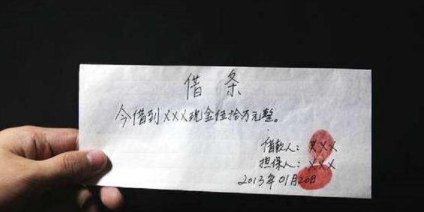 借条
今借到XXX现金伍拾万元整。
借款人：XXX
担保人：XXX
2013年01月20日